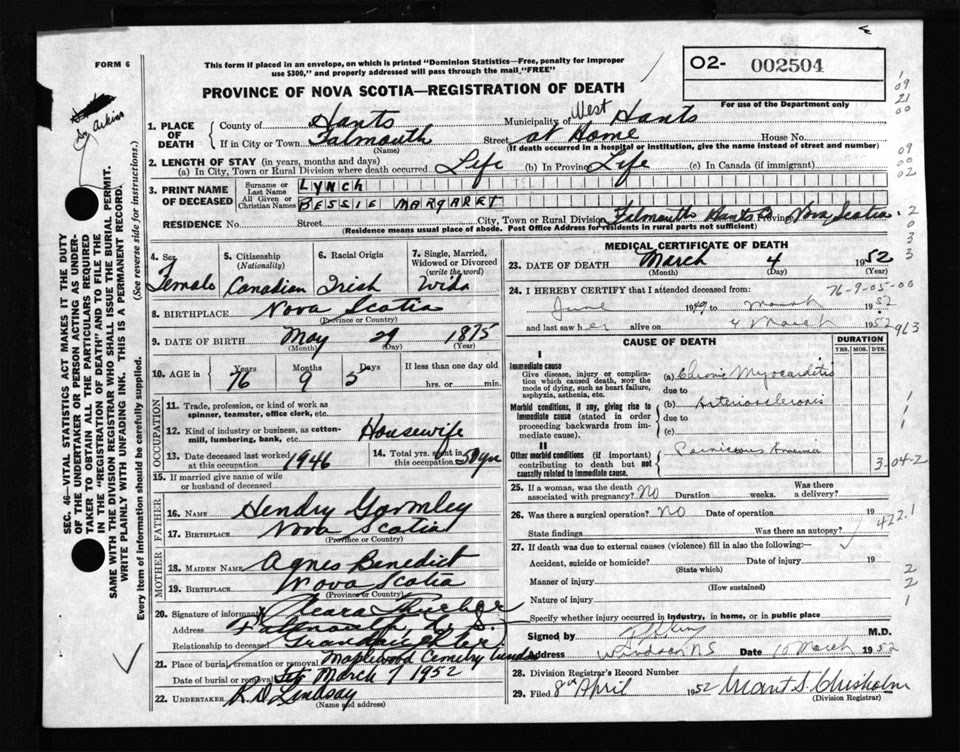 FORM 6
This form if placed in an envelope, on which is printed "Dominion Statistics—Free, penalty for improper
use $300," and properly addressed will pass through the mail "FREE"
O2- 002504
PROVINCE OF NOVA SCOTIA—REGISTRATION OF DEATH
For use of the Department only
1. PLACE OF DEATH
County of Hants Municipality of West Hants
If in City or Town Falmouth Street at Home House No.
(Name) (If death occurred in a hospital or institution, give the name instead of street and number)
2. LENGTH OF STAY (in years, months and days)
(a) In City, Town or Rural Division where death occurred Life (b) In Province Life (c) In Canada (if immigrant)
3. PRINT NAME OF DECEASED
Surname or Last Name LYNCH
All Given or Christian Names BESSIE MARGARET
RESIDENCE No. Street City, Town or Rural Division Falmouth Hants Co Province Nova Scotia.
(Residence means usual place of abode. Post Office Address for residents in rural parts not sufficient)
4. Sex Female
5. Citizenship (Nationality) Canadian
6. Racial Origin Irish
7. Single, Married, Widowed or Divorced (write the word) Wido
8. BIRTHPLACE Nova Scotia
(Province or Country)
9. DATE OF BIRTH May 29 1875
(Month) (Day) (Year)
10. AGE in Years 76 Months 9 Days 5 If less than one day old
hrs. or min.
OCCUPATION
11. Trade, profession, or kind of work as
spinner, teamster, office clerk, etc.
12. Kind of industry or business, as cotton-
mill, lumbering, bank, etc. Housewife
13. Date deceased last worked at this occupation 1946
14. Total yrs. spent in this occupation 50 yrs
15. If married give name of wife
or husband of deceased
FATHER
16. NAME Hendry Gormley
17. BIRTHPLACE Nova Scotia
(Province or Country)
MOTHER
18. MAIDEN NAME Agnes Benedict
19. BIRTHPLACE Nova Scotia
(Province or Country)
20. Signature of informant
Address Falmouth N. S.
Relationship to deceased
21. Place of burial, cremation or removal Maplewood Cemetry
Date of burial or removal March 7 1952
22. UNDERTAKER R.D. Lindsay
(Name and address)
MEDICAL CERTIFICATE OF DEATH
23. DATE OF DEATH March 4 1952
(Month) (Day) (Year)
24. I HEREBY CERTIFY that I attended deceased from: 76-9-05-00
June 1949 to March 1952
and last saw her alive on 4 March 1952 963
CAUSE OF DEATH
DURATION
YRS. MOS. DYS.
I
Immediate cause
Give disease, injury or complica-
tion which caused death, NOT the
mode of dying, such as heart failure,
asphyxia, asthenia, etc.
(a) Chronic Myocarditis
due to
Morbid conditions, if any, giving rise to
immediate cause (stated in order
proceeding backwards from im-
mediate cause).
(b) Arteriosclerosis
due to
(c)
II
Other morbid conditions (if important)
contributing to death but not
causally related to immediate cause.
Pernicious Anaemia
3-04-2
25. If a woman, was the death
associated with pregnancy? No Duration weeks. Was there
a delivery?
26. Was there a surgical operation? No Date of operation 19
State findings Was there an autopsy?
422.1
27. If death was due to external causes (violence) fill in also the following:—
Accident, suicide or homicide? Date of injury 19
(State which)
Manner of injury
(How sustained)
Nature of injury
Specify whether injury occurred in industry, in home, or in public place
Signed by M.D.
Address Windsor NS Date 10 March 1952
28. Division Registrar's Record Number
29. Filed 8th April 1952 Grant S. Chisholm
(Division Registrar)
SEC. 46—VITAL STATISTICS ACT MAKES IT THE DUTY
OF THE UNDERTAKER OR PERSON ACTING AS UNDER-
TAKER TO OBTAIN ALL THE PARTICULARS REQUIRED
IN THE "REGISTRATION OF DEATH" AND TO FILE THE
SAME WITH THE DIVISION REGISTRAR WHO SHALL ISSUE THE BURIAL PERMIT.
WRITE PLAINLY WITH UNFADING INK. THIS IS A PERMANENT RECORD.
(See reverse side for instructions.)
Every item of information should be carefully supplied.